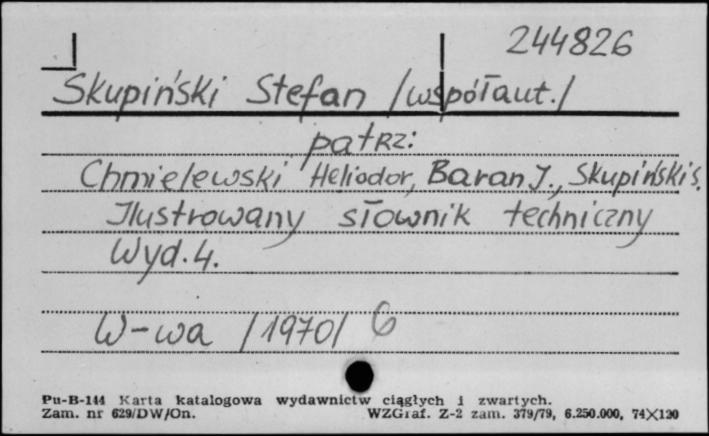 244826
Skupiński Stefan /współaut./
patrz:
Chmielewski Heliodor, Baran J., Skupiński S.
Ilustrowany słownik techniczny
Wyd. 4.
W-wa /1970/ 6
Pu-B-144 Karta katalogowa wydawnictw ciągłych i zwartych.
Zam. nr 629/DW/On. WZGraf. Z-2 zam. 379/79, 6.250.000, 74X120